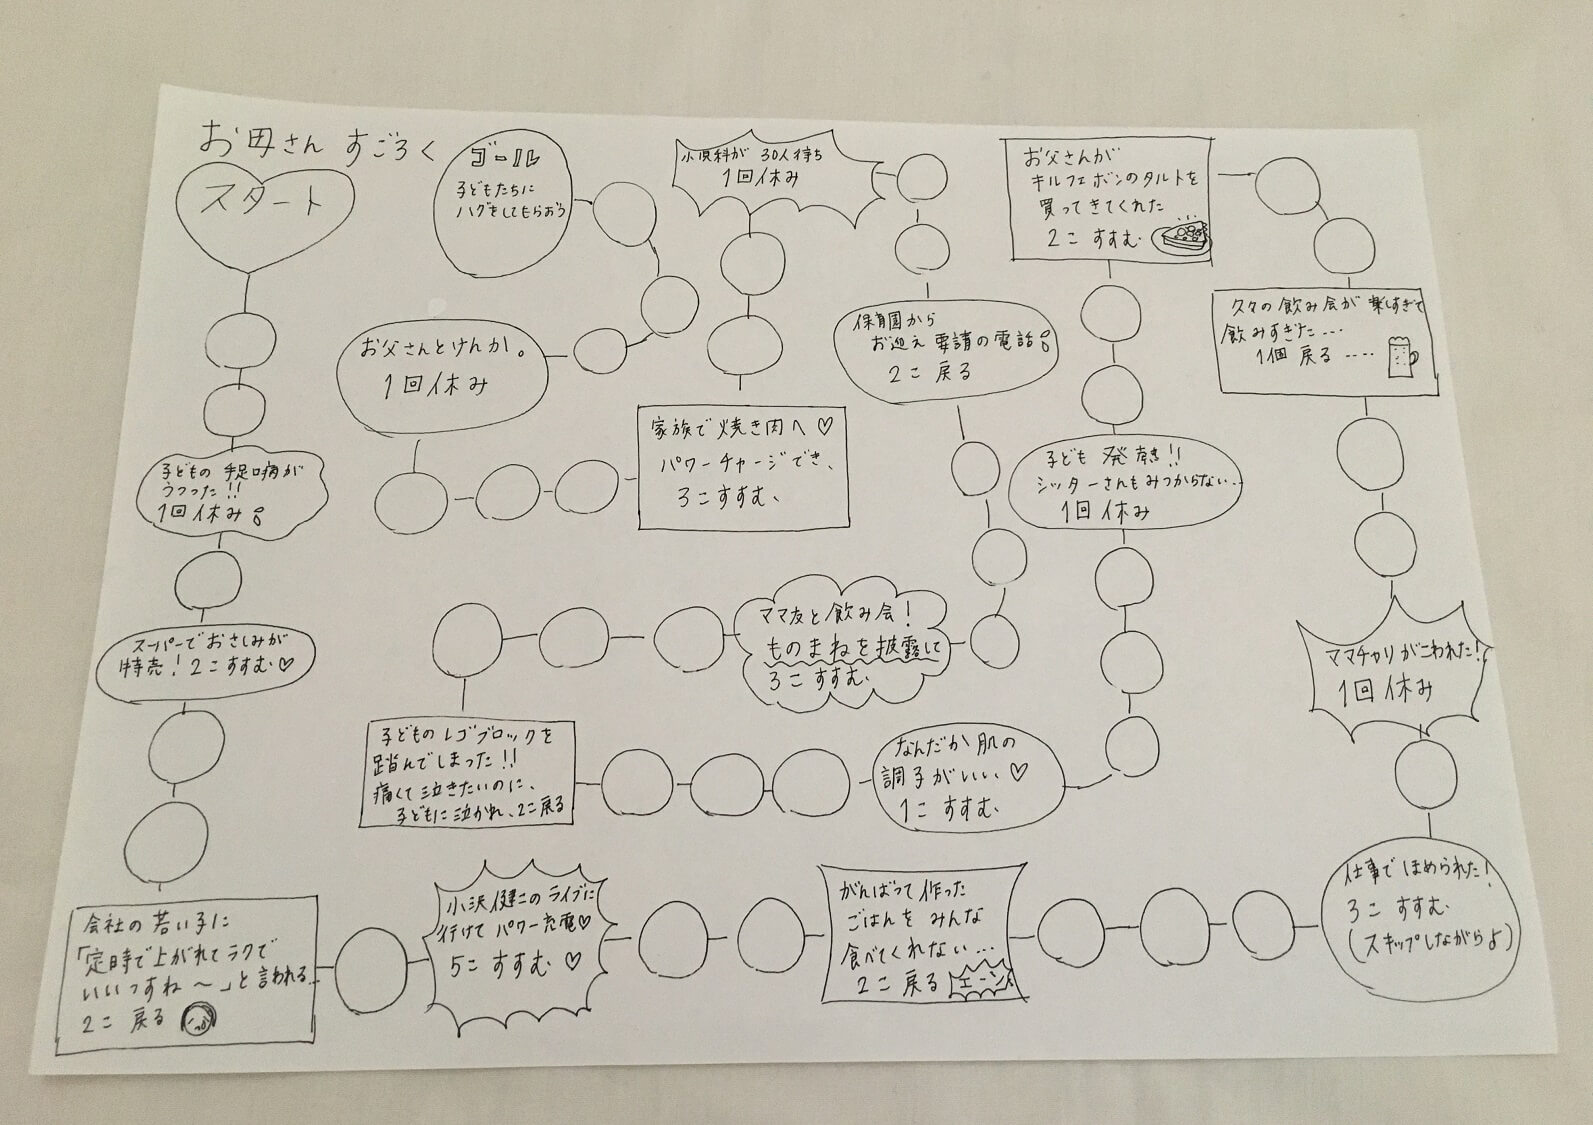 お母さん すごろく
スタート
子どもの 手足口病が
うつった!!
1回 休み
スーパーで おさしみが
特売! 2こ すすむ♡
会社の 若い子に
「定時で上がれて ラクで
いいっすね〜」と 言われる...
2こ 戻る
小沢健二の ライブに
行けて パワー充電♡
5こ すすむ ♡
がんばって 作った
ごはんを みんな
食べてくれない...
2こ 戻る エーン
仕事で ほめられた!
3こ すすむ
(スキップしながら♪)
ママチャリが こわれた!
1回 休み
久々の 飲み会が 楽しすぎて
飲みすぎた...
1個 戻る ....
お父さんが
キルフェボンのタルトを
買ってきてくれた
2こ すすむ
子ども 発熱!!
シッターさんも みつからない...
1回 休み
なんだか 肌の
調子が いい ♡
1こ すすむ
子どもの レゴブロックを
踏んでしまった!!
痛くて 泣きたいのに、
子どもに 泣かれ、2こ 戻る
ママ友と 飲み会!
ものまねを 披露して
3こ すすむ
保育園から
お迎え 要請の 電話
2こ 戻る
小児科が 30人待ち
1回 休み
家族で 焼き肉へ ♡
パワーチャージでき、
3こ すすむ、
お父さんと けんか。
1回 休み
ゴール
子どもたちに
ハグをしてもらおう